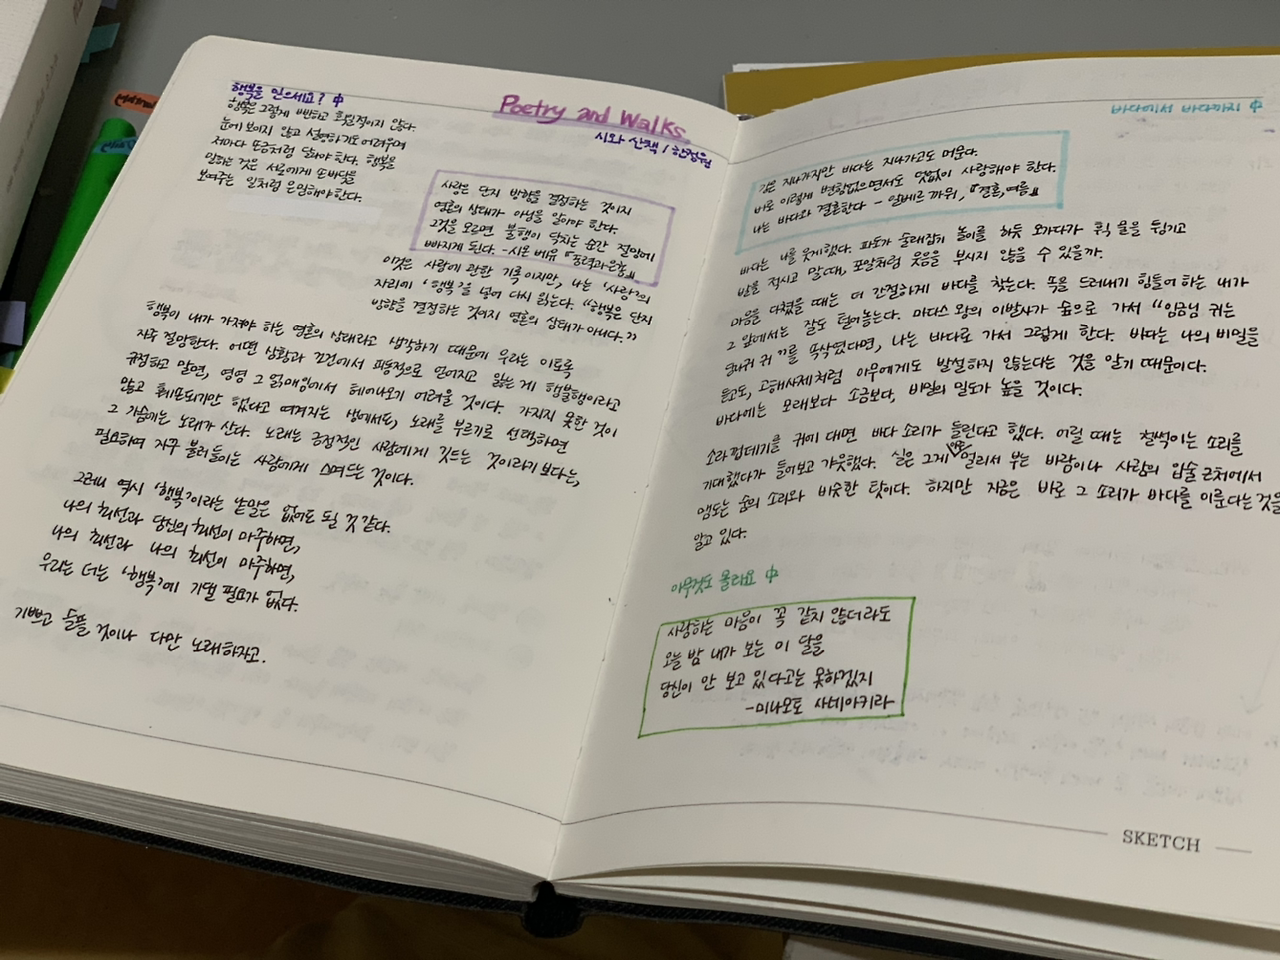 Poetry and Walks
시와 산책 / 한정원
행복을 믿으세요? 中
행복은 그렇게 빤하고 획일적이지 않다.
눈에 보이지 않고 설명하기도 어려우며
저마다 손금처럼 달라야 한다. 행복을
말하는 것은 서로에게 손바닥을
보여주는 일처럼 은밀해야 한다.
사랑은 단지 방향을 결정하는 것이지
영혼의 상태가 아님을 알아야 한다.
그것을 모르면 불행이 닥치는 순간 절망에
빠지게 된다. -시몬 베유 『중력과 은총』
이것은 사랑에 관한 기록이지만, 나는 '사랑'의
자리에 '행복'을 넣어 다시 읽는다. "행복은 단지
방향을 결정하는 것이지 영혼의 상태가 아니다."
행복이 내가 가져야 하는 영혼의 상태라고 생각하기 때문에 우리는 이토록
자주 절망한다. 어떤 상황과 조건에서 피동적으로 얻어지고 잃는 게 행불행이라고
규정하고 말면, 영영 그 얽매임에서 헤어나오기 어려울 것이다. 가지지 못한 것이
많고 훼손되기만 했다고 여겨지는 생에서도, 노래를 부르기로 선택하면
그 가슴에는 노래가 산다. 노래는 긍정적인 사람에게 깃드는 것이라기보다는,
필요하여 자꾸 불러들이는 사람에게 스며드는 것이다.
그러니 역시 '행복'이라는 낱말은 없어도 될 것 같다.
나의 최선과 당신의 최선이 마주하면,
나의 최선과 나의 최선이 마주하면,
우리는 더는 '행복'에 기댈 필요가 없다.
기쁘고 슬플 것이나 다만 노래하자고.
바다에서 바다까지 中
길은 지나가지만 바다는 지나가고도 머문다.
바로 이렇게 변함없으면서도 덧없이 사랑해야 한다.
나는 바다와 결혼한다 - 알베르 까뮈, 『결혼,여름』
바다는 나를 웃게했다. 파도가 술래잡기 놀이를 하듯 오가다가 휙 물을 튕기고
발을 적시고 말 때, 포말처럼 웃음을 부시지 않을 수 있을까.
마음을 다쳤을 때는 더 간절하게 바다를 찾는다. 속을 드러내기 힘들어 하는 내가
그 앞에서는 잘도 털어놓는다. 마다스 왕의 이발사가 숲으로 가서 "임금님 귀는
당나귀 귀"를 속삭였다면, 나는 바다로 가서 그렇게 한다. 바다는 나의 비밀을
듣고도, 고해사제처럼 아무에게도 발설하지 않는다는 것을 알기 때문이다.
바다에는 모래보다 소금보다, 비밀의 밀도가 높을 것이다.
소라껍데기를 귀에 대면 바다 소리가 들린다고 했다. 어릴 때는 철썩이는 소리를
기대했다가 들어보고 갸웃했다. 실은 그게 멀리서 부는 바람이나 사람의 입술 근처에서
맴도는 숨의 소리와 비슷한 탓이다. 하지만 지금은 바로 그 소리가 바다를 이룬다는 것을
알고 있다.
아무것도 몰라요 中
사랑하는 마음이 꼭 같지 않더라도
오늘 밤 내가 보는 이 달을
당신이 안 보고 있다고는 못하겠지
-미나모토 사네아키라
SKETCH